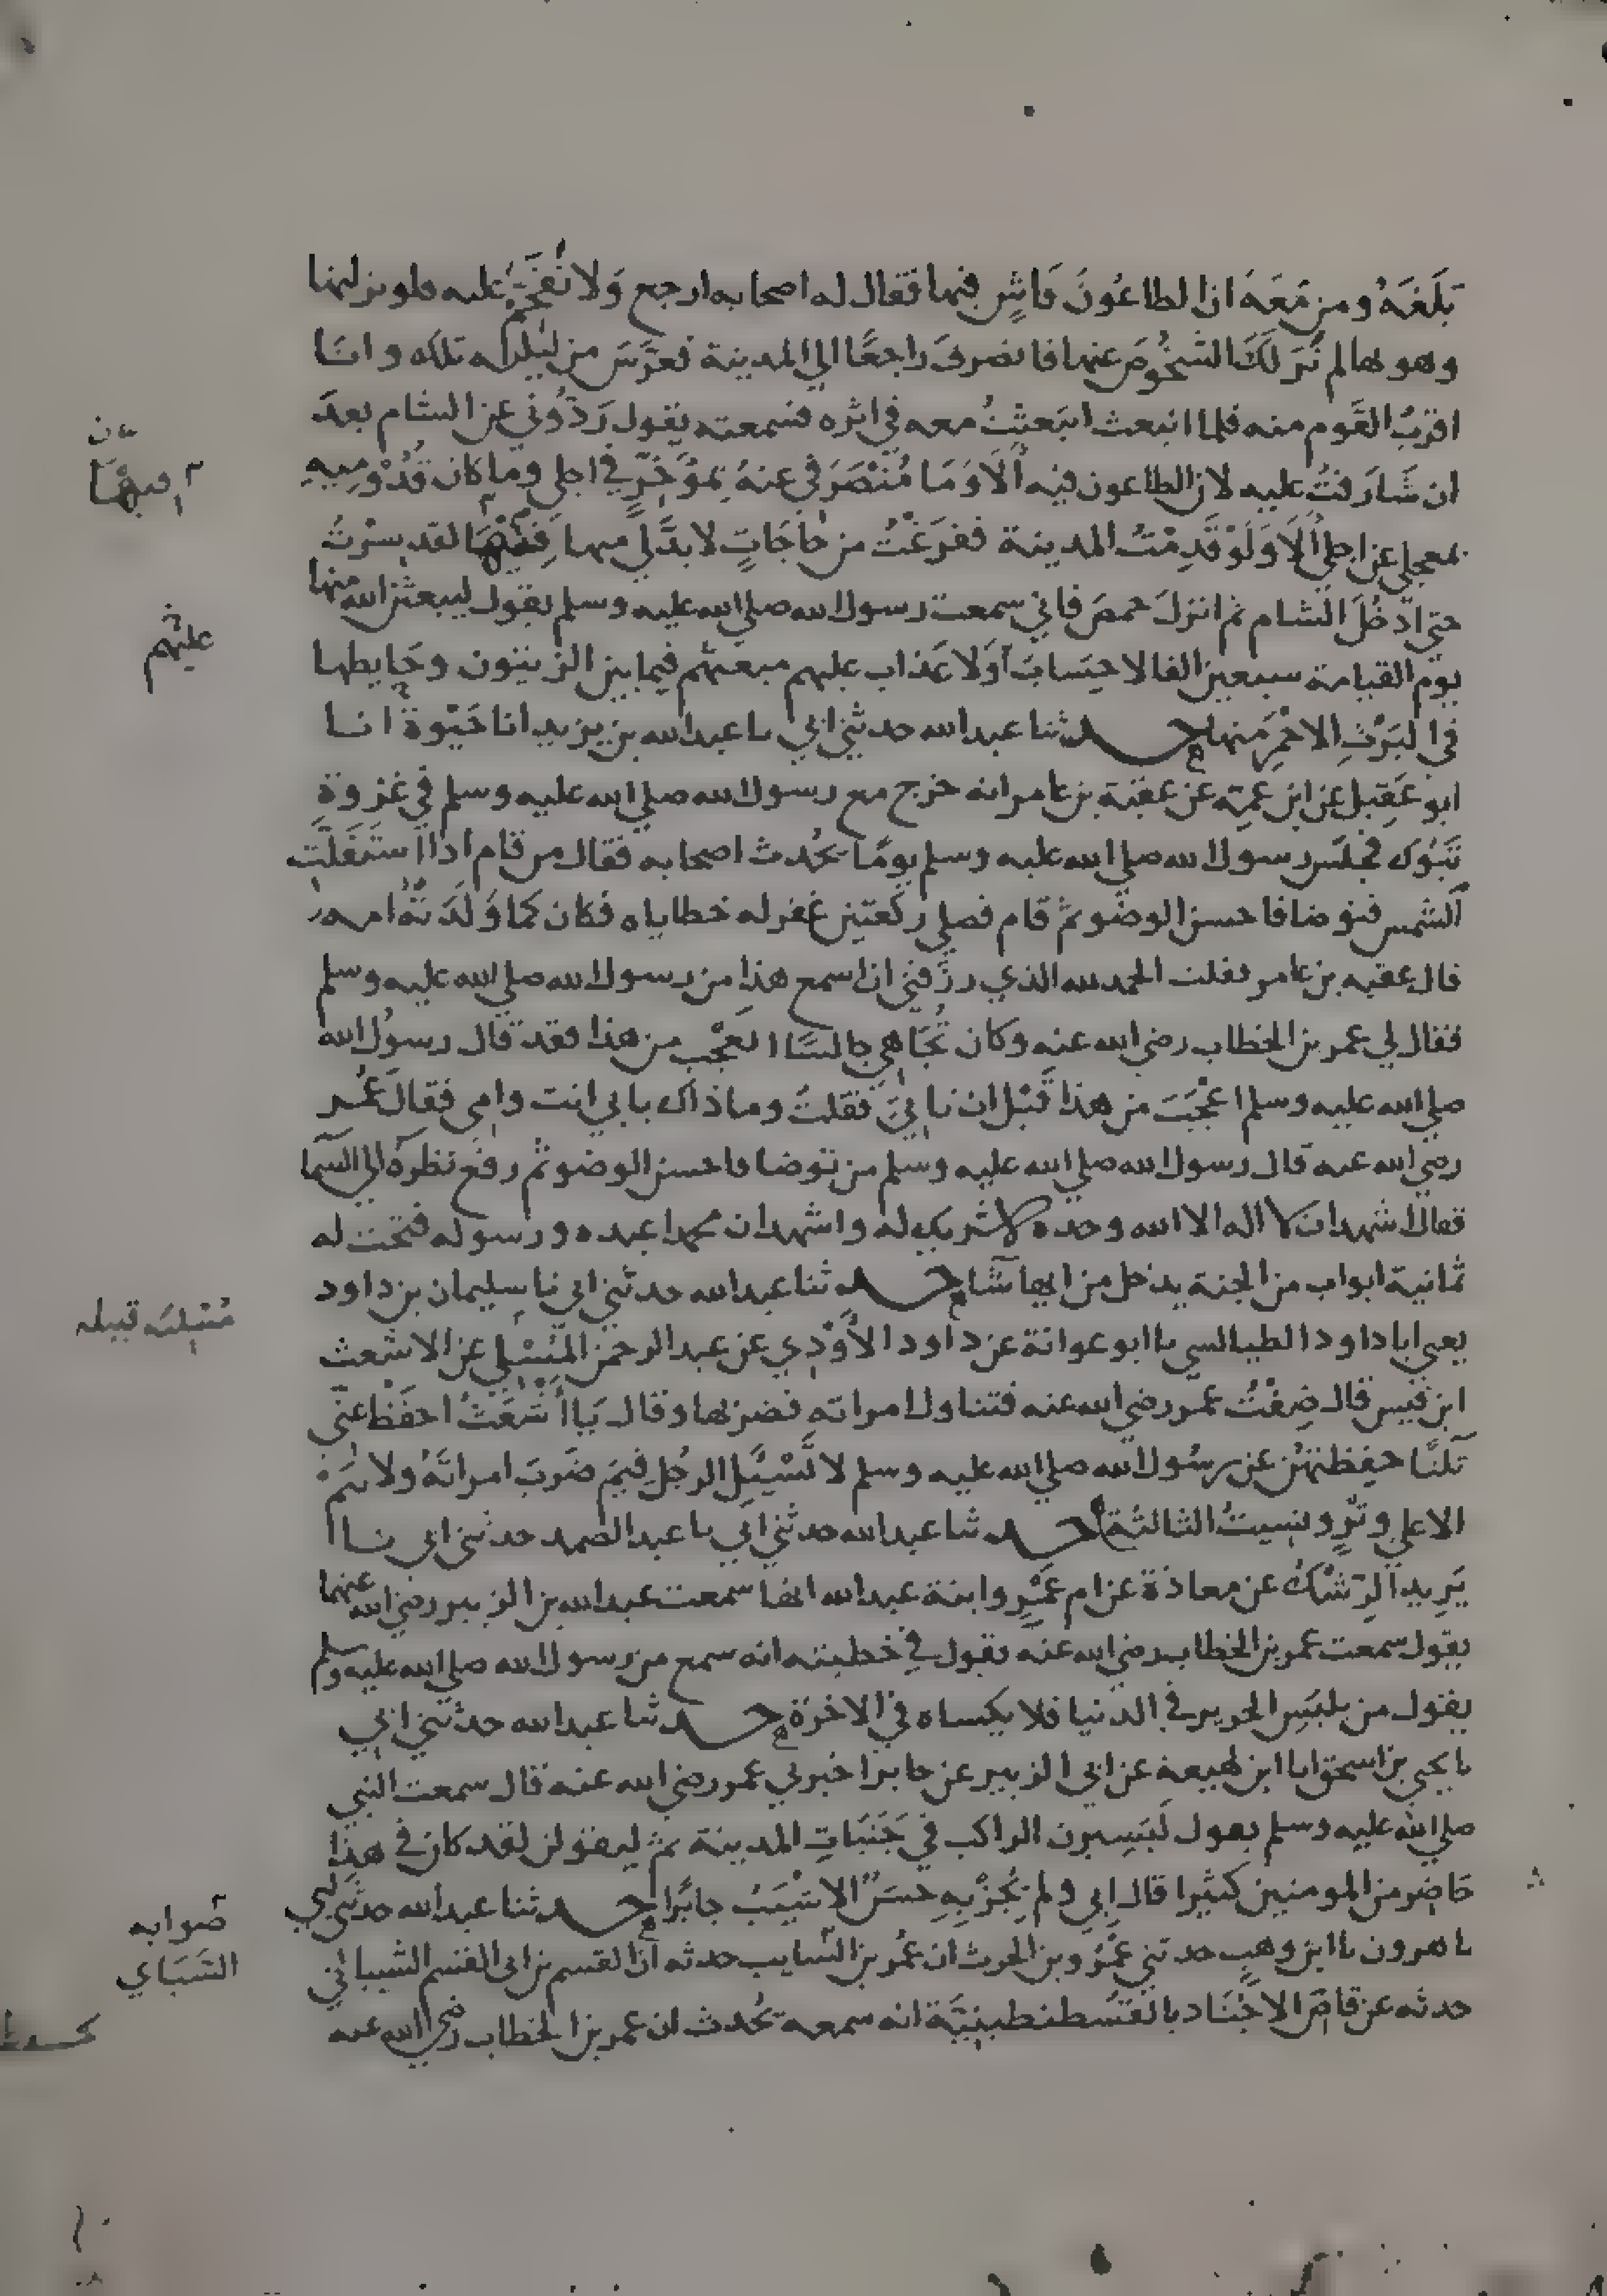 بَلَغَهُ ومن مَعَهَ ان الطاعُونَ فَاشٍ فيها فقال له اصحابه ارجع وَلا تَقَحَّمْ عليه فلو نزلتها
وهو بها لم نَرَ لَكَ الشُخُوصَ عنها فانصرفَ راجعًا الي المدينة فعَرَّسَ من ليلته تلك وانَا
اقربُ القَوم منه فلما انبعث انبَعثْتُ معه في اثره فسمعته يقول رَدُّوني عن الشام بعدَ
ان شَارَفتُ عليه لان الطاعون فيه أَلَا وَمَا مُنْصَرَفي عنهُ بِمُؤَخِّرٍ في اجلي وما كان قُدُوْمِيهِ
بمعجلي عن اجلي أَلَا وَلَوْ قَدِمْتُ المدينة ففرَغْتُ من حَاجَاتٍ لا بدَّ لي منها فيها لقد سرْتُ
حتي ادخُلَ الشام ثم انزلَ حمصَ فاني سمعت رسول الله صلي الله عليه وسلم يقول ليبعثن الله منها
يوم القيامة سبعين الفا لا حِسَابَ ولا عَذاب عليهم مبعثهم فيما بين الزيتون وحَايطها
في البَرْثِ الاحْمَرِ منها حـــد ثنا عبد الله حدثني ابي نا عبد الله بن يزيد انا حَيْوة انا
ابو عَقِيل عن ابن عَمِّه عن عقبَة بن عامر انه خرج مع رسول الله صلي الله عليه وسلم في غزوة
تَبُوك فجلسَ رسول الله صلي الله عليه وسلم يومًا يُحَدث اصحابه فقال من قام اذا استَقَلَّت
الشمس فتوضا فاحسن الوضو ثم قام فصلي ركعتين غفر له خطاياه فكان كما وَلَدَتْهُ امه
قال عقبه بن عامر فقلت الحمد لله الذي رزَقني ان اسمع هذا من رسول الله صلي الله عليه وسلم
فقال لي عمر بن الخطاب رضي الله عنه وكان تُجَاهي جالسًا اتعجَب من هذا فقد قال رسولُ الله
صلي الله عليه وسلم اعْجَبَ من هذا قَبْل ان تاتيَ فقلتُ وما ذاك بابي انت وامي فقال عُمر
رضي الله عنه قال رسول الله صلي الله عليه وسلم من توضا فاحسن الوضو ثم رفع نظرَه الي السما
فقال اشهد ان لا اله الا الله وحده لا شريك له واشهد ان محمدا عبده ورسوله فتحت له
ثمانية ابواب من الجنة يدخل من ايها شا حـــد ثنا عبد الله حدثني ابي نا سليمان بن داود
يعني ابا داود الطيالسي نا ابو عوانة عن داود الأَوْدِي عن عبد الرحمن المُسْلي عن الاشعث
ابن قيس قال ضِفْتُ عمر رضي الله عنه فتناول امراته فضربها وقال يَا أَشْعَثُ احفَظْ عنّي
ثلثًا حفِظتهُن عن رسُول الله صلي الله عليه وسلم لا تَسْئَلِ الرجُلَ فيمَ ضَرَبَ امراتَهُ ولا تنَمْ
الا علي وَتْرٍ ونسِيتُ الثالثة حـــد ثنا عبد الله حدثني ابي نا عبد الصمد حدثني ابي نا
يَزِيد الرِشْكُ عن معاذَة عن ام عَمْرٍو ابنة عبد الله انها سمعت عبد الله بن الزبير رضي الله عنهما
يقول سمعت عمر بن الخطاب رضي الله عنه يقول في خطبته انه سمع من رسول الله صلي الله عليه وسلم
يقول من يلبَسِ الحرير في الدنيا فلا يكساه في الاخرَة حـــد ثنا عبد الله حدثني ابي
نا يحيي بن اسحق انا ابن لهيعة عن ابي الزبير عن جابر اخبرني عمر رضي الله عنه قال سمعت النبي
صلي الله عليه وسلم يقول لَيَسِيرن الراكب في جَنَبَاتِ المدينة ثم ليقولن لقد كان في هذا
حَاضِر من المومنين كثيرا قال ابي ولم يَجُزْ بِهِ حسَنٌ الاشْيَبُ جابرًا حـــد ثنا عبد الله حدثني ابي
نا هرون نا ابن وهب حدثني عَمْرُو بن الحرث ان عُمر بن السَّايب حدثه انَّ القسم بن ابي القسم الشيباني
حدثه عن قاصِّ الاجْنَاد بالقسْطنطينيَّة انه سمعه يُحَدث ان عمر بن الخطاب رضي الله عنه
عليهم
مُسْلِيَه قبيله
صَوابه
السَبَاي